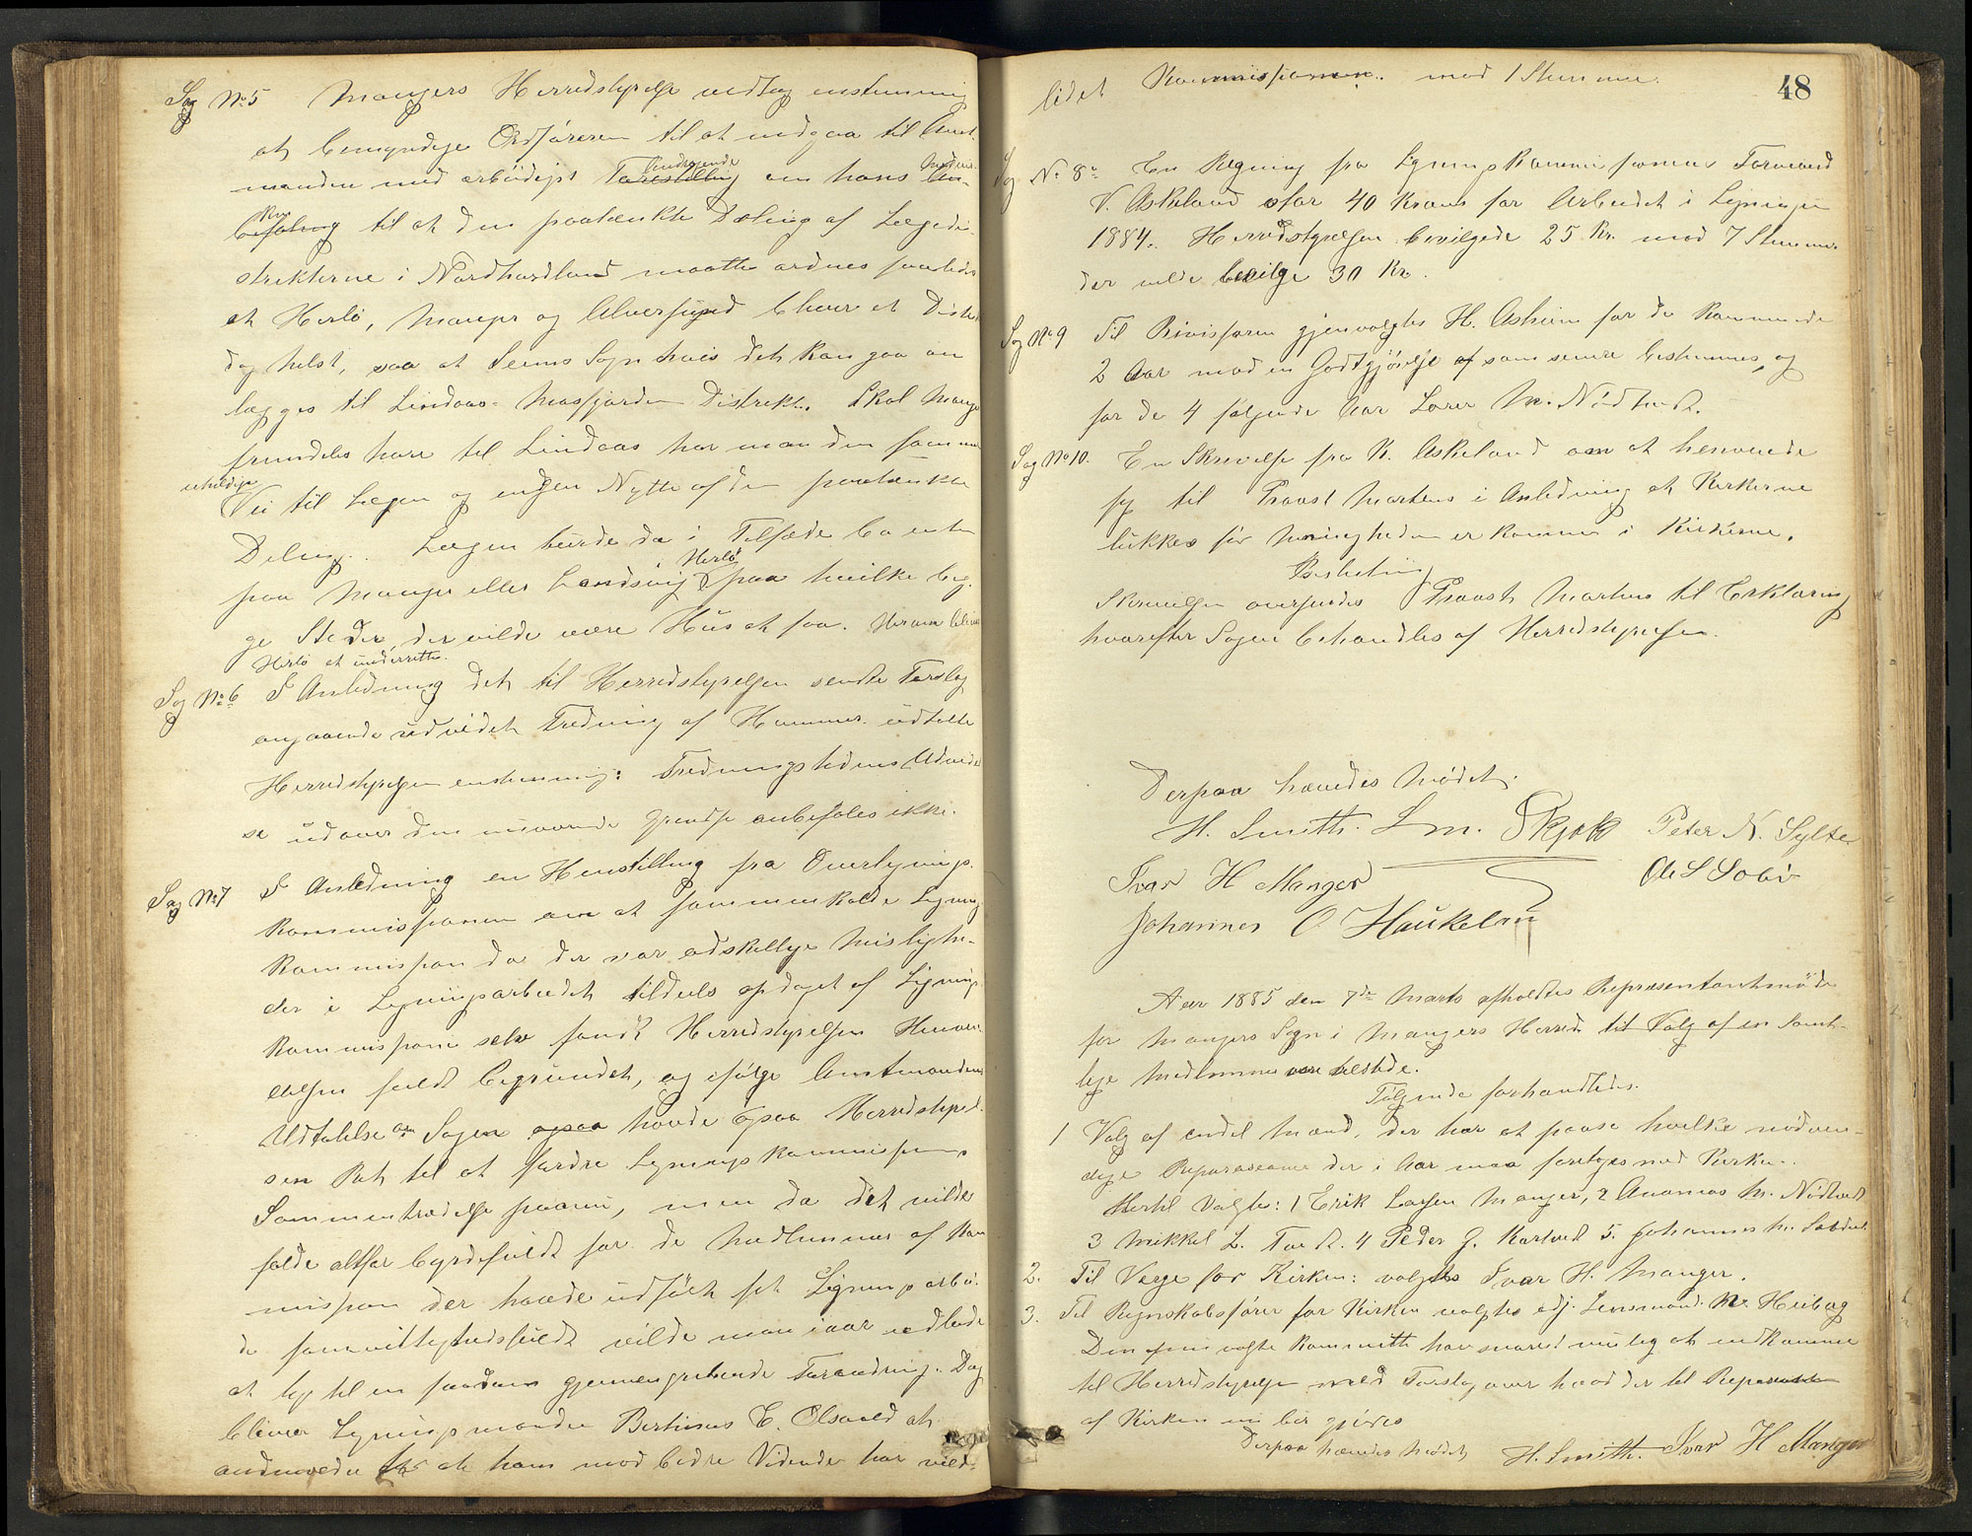 Sag No 5 Mangers Herredstyrelse vedtog enstemmig
at bemyndige Ordføreren til at indgaa til Amt-
manden med ærbødigst Forestilling Andragende om hans
til at den paatænkte Deling af Lægedi-
strikterne i Nordhordland maatte ordnes saaledes
at Herlö, Manger og Alversund bliver et Distrikt
dog helst, saa at Seims Sogn hvis det kan gaa an
lægges til Lindaas-Masfjorden Distrikt. Skal Manger
fremdeles høre til Lindaas har man den samme
uheldige
Vei til Lægen og ingen Nytte af den paatænkte
Deling. Lægen burde da i Tilfæde bo enten
paa Manger eller Landsvig Herlö paa hvilke beg-
ge Steder, der vilde være Hus at faa. Herom bliver
Herlö at underrette.
Sag No 6 I Anledning det til Herredstyrelsen sendte Forslag
angaaende udvidet Fredning af Hummer udtalte
Herredstyrelsen enstemmig: Fredningstidens Udvidel
se udover den nuværende Grendse anbefales ikke.
Sag No 7 I Anledning en Henstilling fra Overlignings-
kommissionen om at sammenkalde Lignings
kommission da der var adskellige Mislighe-
der i Ligningsarbeidet tildels opdaget af Lignings
kommissionen selv fandt Herredstyrelsen Henven-
delsen fuldt begrundet, og ifølge Amtmandens
Udtalelse om Sagen havde ogsaa Herredstyrel-
sen Ret til at fordre Ligningskommissionens
Sammentrædelse paany, men da det vilde
falde altfor byrdefuldt for de Medlemmer af Kom
mission der havde udført sit Ligningsarbei-
de samvittighedsfuldt vilde man iaar undlade
at ty til en saadan gjennemgribende Forandring. Dog
bliver Ligningsmanden Bertinus E. Olsvold at
anmode at han mod bedre Vidende har vild-
48
ledet Kommissionen. mod 1 Stemme.
Sag No 8 En Regning fra Ligningskommissionens Formand
N. Askeland stor 40 Kroner for Arbeidet i Ligningen
1884. Herredstyrelsen bevilgede 25 Kr. mod 7 Stemmer
der vilde bevilge 30 Kr.
Sag No 9 Til Revisoren gjenvalgtes H. Askeim for de kommende
2 Aar mod en Godtgjörelse som senere bestemmes, og
for de 4 følgende Aar Lærer M. Nödtvedt.
Sag No 10. En Skrivelse fra N. Askeland om at henvende
sig til Provst Martens i Anledning at Kirkerne
lukkes før Menigheden er kommen i Kirkerne.
Beslutning
Skrivelsen oversendes Provst Martens til Erklæring
hvorefter Sagen behandles af Herredstyrelsen.
Derpaa hævedes Mödet.
H. Smith. L M. Skjelk Peter N. Sylte
Ivar H Manger Ole S Sæbö
Johannes O Haukeland
Aar 1885 den 7de Marts afholdtes Repræsentantmöde
for Mangers Sogn i Mangers Herred. til Valg af en Samt-
lige Medlemmer var tilstede.
Følgende forhandledes.
1 Valg af endel Mænd, der har at paase hvilke nødven-
dige Reparationer der i Aar maa foretages ved Kirken.
Hertil valgtes: 1 Erik Larsen Manger, 2 Anamas M. Nödtvedt
3 Mikkel L. Toft. 4 Peder J. Kartveit 5. Johannes M.
2. Til Verge for Kirken: valgtes Ivar H. Manger.
3. Til Regnskabsfører for Kirken valgtes Lensmand. M. Heiberg
Den ovenvalgte Kommitte har snarest mulig at indkomme
til Herredstyrelsen med Forslag over hvad der til Reparation
af Kirken nu bör gjöres
Derpaa hævedes Mödet H. Smith. Ivar H Manger